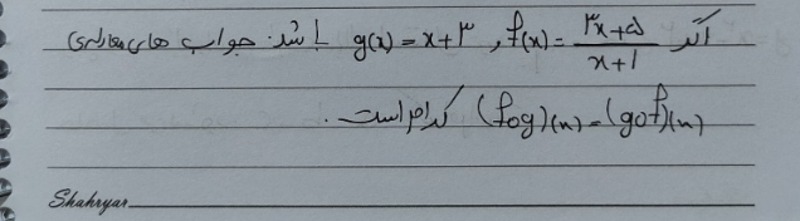 اگر f(x) = (3x+5)/(x+1) , g(x) = x+3 باشد. جواب های معادله‌ی
(fog)(x) = (gof)(x) کدام است.
Shahryar